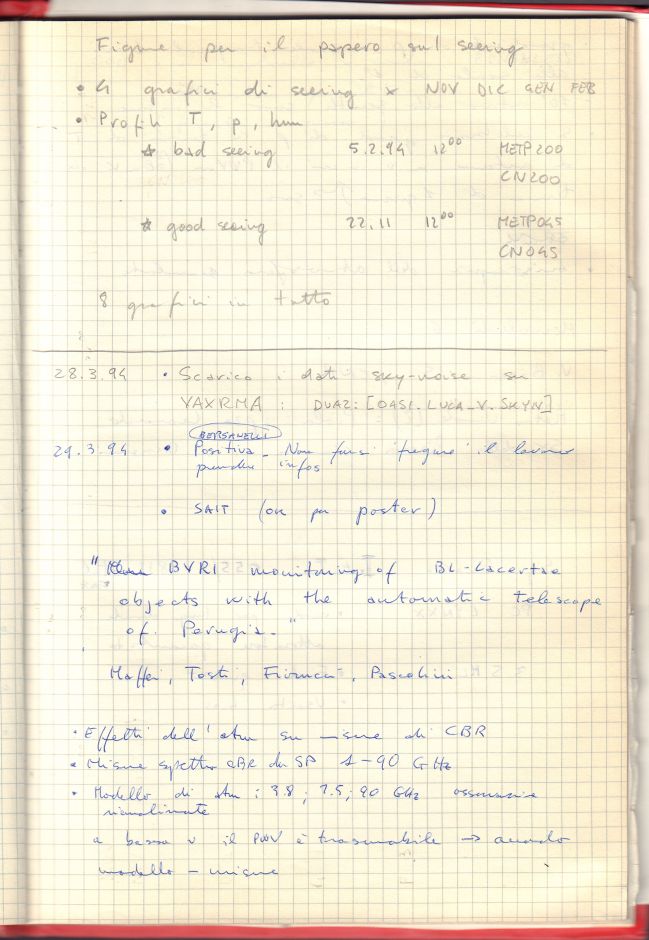 Figure per il papero sul seeing
• 4 grafici di seeing x NOV DIC GEN FEB
• Profili T, p, hum
* bad seeing 5.2.94 12⁰⁰ METP200
CN200
* good seeing 22.11 12⁰⁰ METP045
CN045
8 grafici in tutto
28.3.94 • Scarico i dati sky-noise su
VAXRMA : DUA2:[OASI.LUCA_V.SKYN]
BERSANELLI
29.3.94 • Positiva - Non farsi 'fregare' il lavoro
prendere infos
• SAIT (ok per poster)
" BVRI monitoring of BL-Lacertae
objects with the automatic telescope
of Perugia."
Maffei, Tosti, Fiorucci, Pascolini
• Effetti dell'atm su misure di CBR
• Misure spettro CBR da SP 1-90 GHz
• Modello di atm : 3.8 ; 7.5 ; 90 GHz
a bassa ν il PWV è → accordo
modello - misure